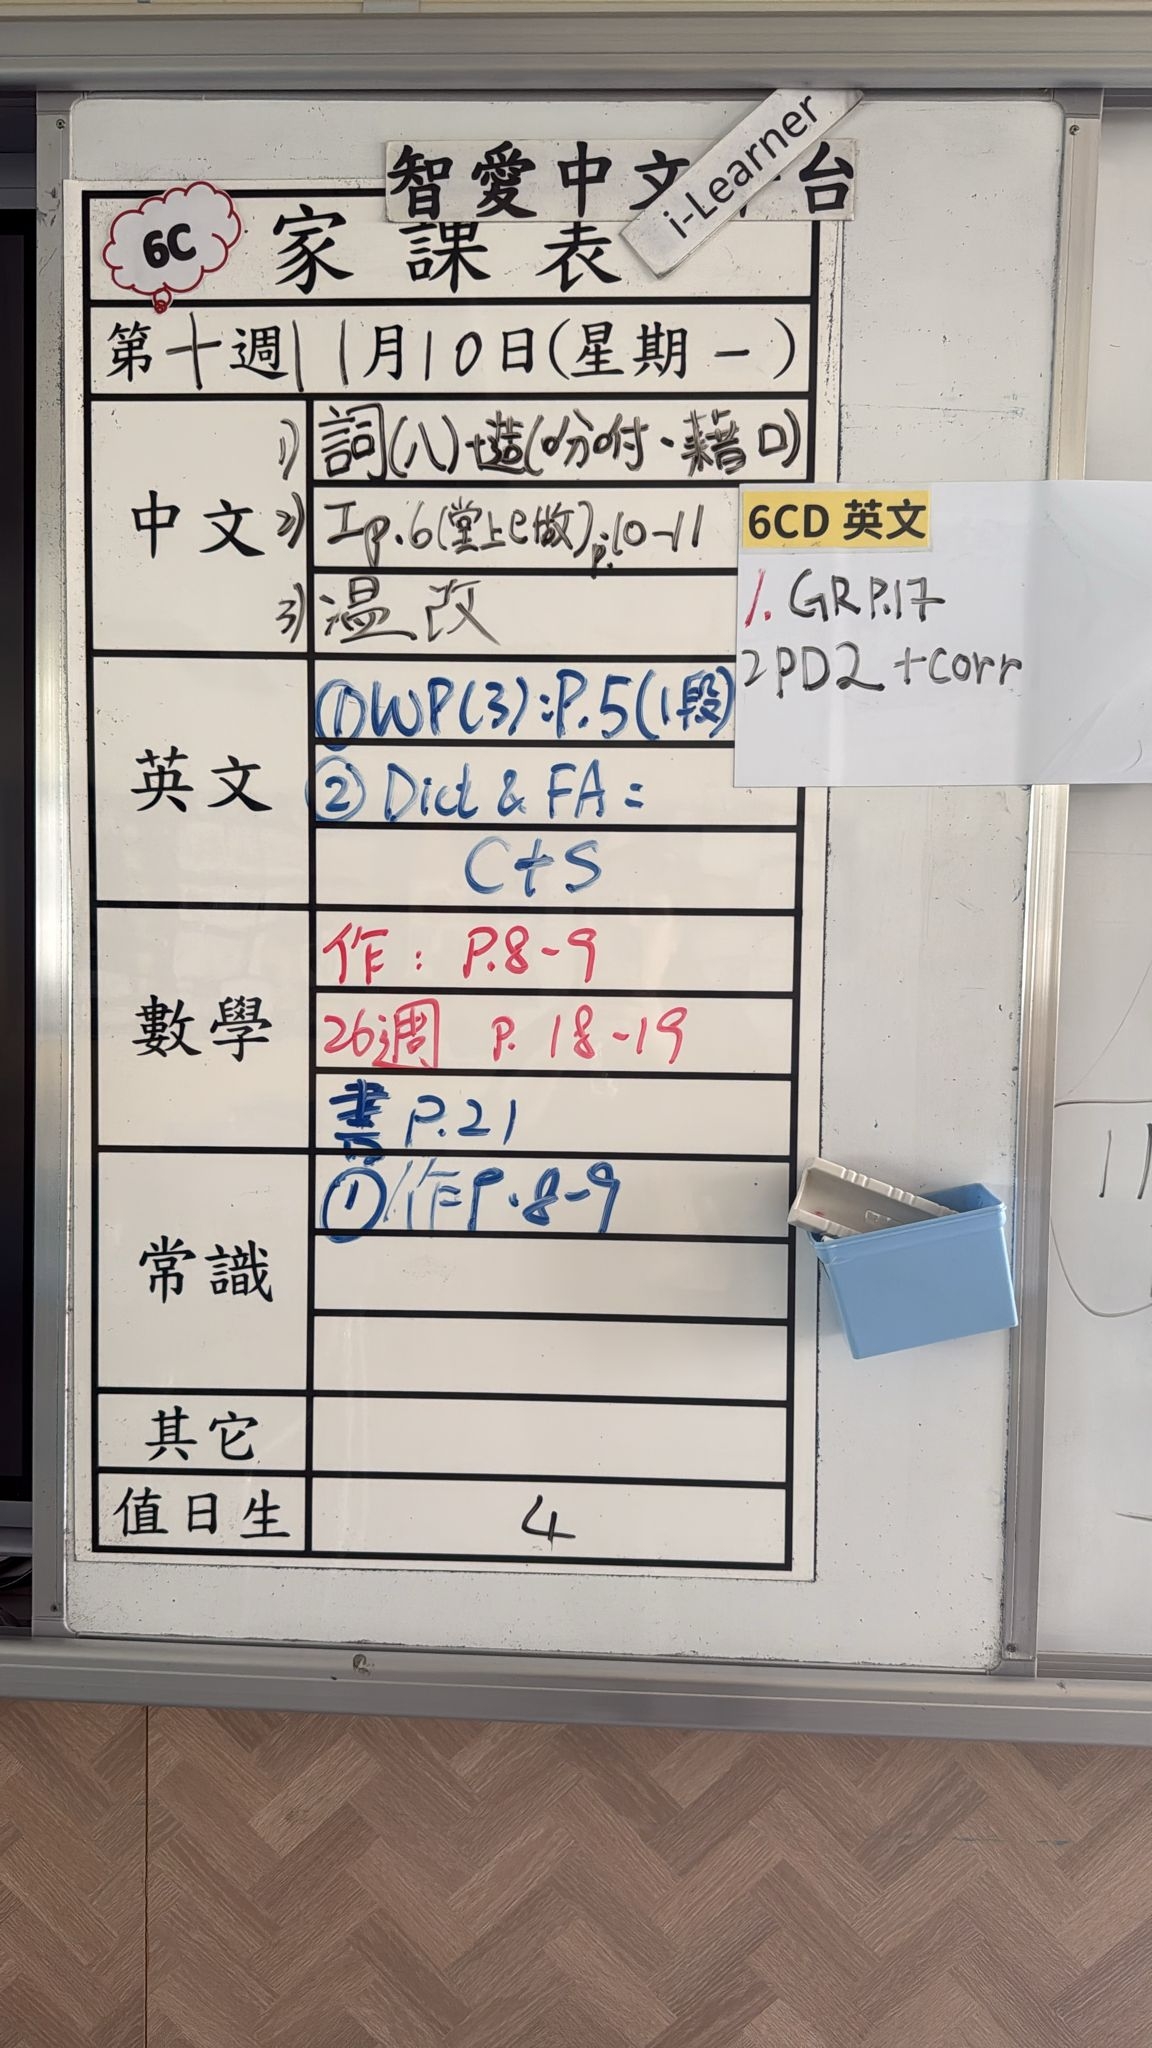 智愛中文 台
i-Learner
6C 家課表
第十週 11月10日(星期一)
中文
1) 詞(八)+造(吩咐、藉口)
2) 工p.6(堂上已做)p.10-11
3) 溫改
6CD 英文
1. GR P.17
2 PD2 +corr
英文
① WP(3):P.5(1段)
② Dict & FA:
C+S
數學
作: P.8-9
26週 P. 18-19
書 P.21
常識
① 作P.8-9
其它
值日生 4
11